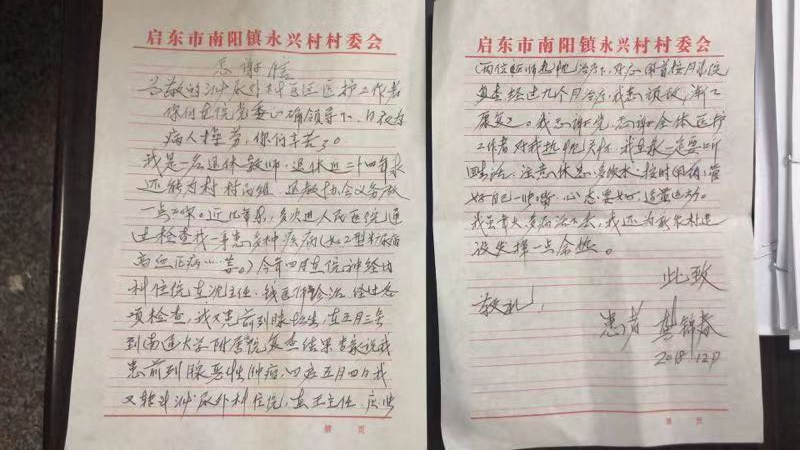 启东市南阳镇永兴村村委会
感谢信
各敬的泌尿外科医区医护工作者
你们在院党委正确领导下、日夜为
病人操劳，你们辛苦了。
我是一名退休教师，退休近二十四年来
还能为村 村两组 退教协会义务做
一点工作。近几年来，多次进人民医院通
过检查我一身患多种疾病（如2型糖尿病
高血压病……等。）今年四月在住神经内
科住院在沈主任、钱医师诊治 经过各
项检查，我又患前列腺增生，在五月三号
到南通大学附属院复查结果专家说我
患前列腺恶性肿瘤，回启五月四日我
又转到泌尿外科住院，在王主任、
第 页
启东市南阳镇永兴村村委会
两位 治疗下，
复查经过九个月治疗，我患顽敌，渐渐
康复了。我感谢党，感谢全体医护
工作者对我热忱关怀，我自来一定要听
医生话，注意休息，多饮水、按时用药，管
好自己一张嘴，心态要好，适量运动。
我虽年大多病治不全，我还为新农村建
设发挥一点余热。
此致
敬礼！
患者 龚锦春
2018.12.7
第 页